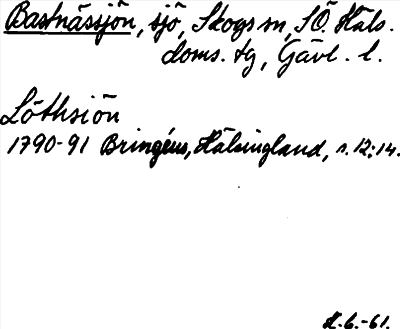 Bastnässjön, sjö, Skogs sn, SÖ. Häls.
doms. tg, Gävl. l.
Löthsiön
1790-91 Bringéus, Hälsingland, s. 12; 14.
H.6.-61.